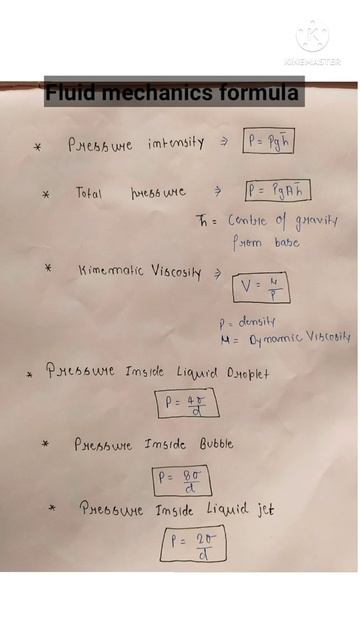 KINEMASTER
Fluid mechanics formula
* Pressure intensity ⇒ P = ρgh̄
* Total pressure ⇒ P = ρgAh̄
h̄ = Centre of gravity
from base
* Kinematic Viscosity ⇒ V = μ/ρ
ρ = density
μ = Dynamic Viscosity
* Pressure Inside Liquid Droplet
P = 4σ/d
* Pressure Inside Bubble
P = 8σ/d
* Pressure Inside Liquid jet
P = 2σ/d